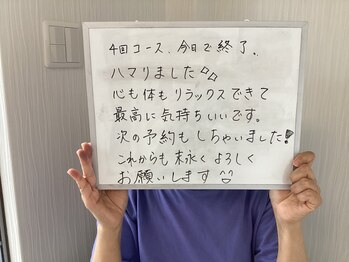 4回コース、今日で終了。
ハマりました
心も体もリラックスできて
最高に気持ちいいです。
次の予約もしちゃいました!
これからも末永くよろしく
お願いします